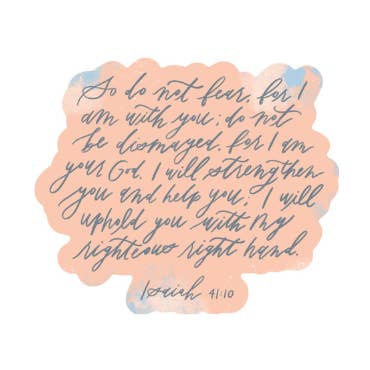 So do not fear, for I
am with you; do not
be dismayed, for I am
your God. I will strengthen
you and help you; I will
uphold you with my
righteous right hand.
Isaiah 41:10